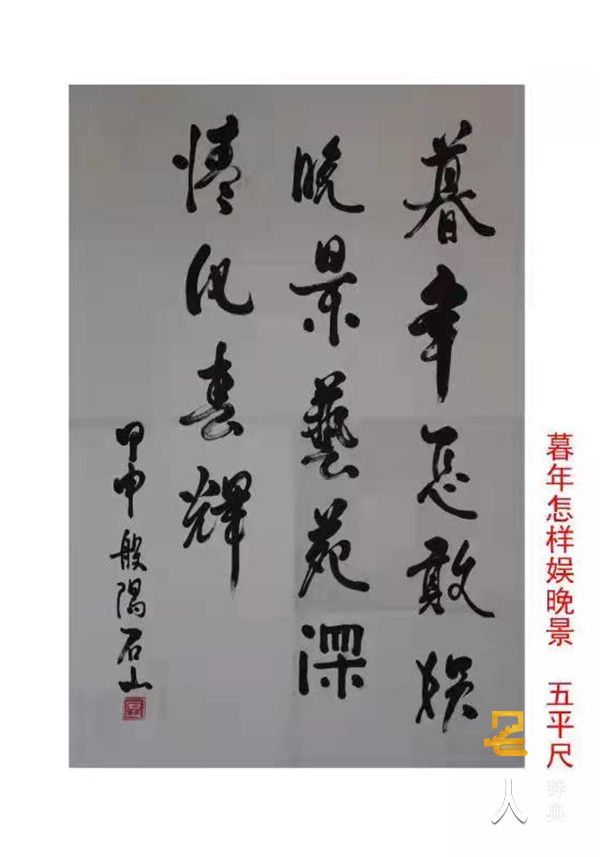 暮年怎敢娱
晚景藝苑深
情化春輝
甲申 般石山
暮年怎样娱晚景 五平尺
人
辞典